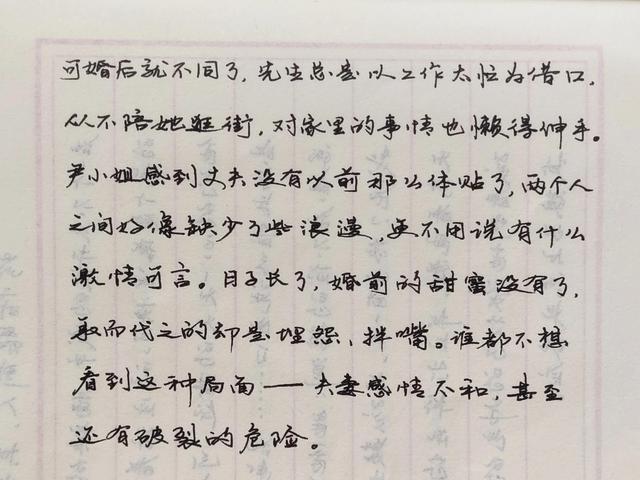 可婚后就不同了，先生总是以工作太忙为借口，
从不陪她逛街，对家里的事情也懒得伸手。
尹小姐感到丈夫没有以前那么体贴了，两个人
之间好像缺少了些浪漫，更不用说有什么
激情可言。日子长了，婚前的甜蜜没有了，
取而代之的却是埋怨、拌嘴。谁都不想
看到这种局面——夫妻感情不和，甚至
还有破裂的危险。